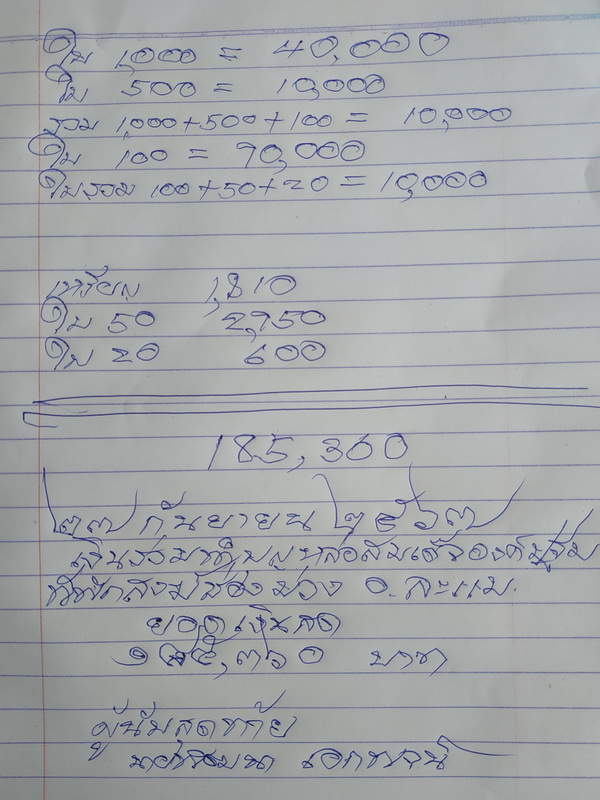 ใบ 1,000 = 40,000
ใบ 500 = 10,000
รวม 1,000+500+100 = 10,000
ใบ 100 = 90,000
ใบรวม 100+50+20 = 10,000
เหรียญ 1,810
ใบ 50 2,950
ใบ 20 600
185,360
๒๗ กันยายน ๒๕๖๗
เงินร่วมทำบุญหล่อสมเด็จองค์ปฐม
ที่พักสงฆ์ อ. ละแม.
ยอดเงินสด
๑๘๕,๓๖๐ บาท
ผู้นับสุดท้าย